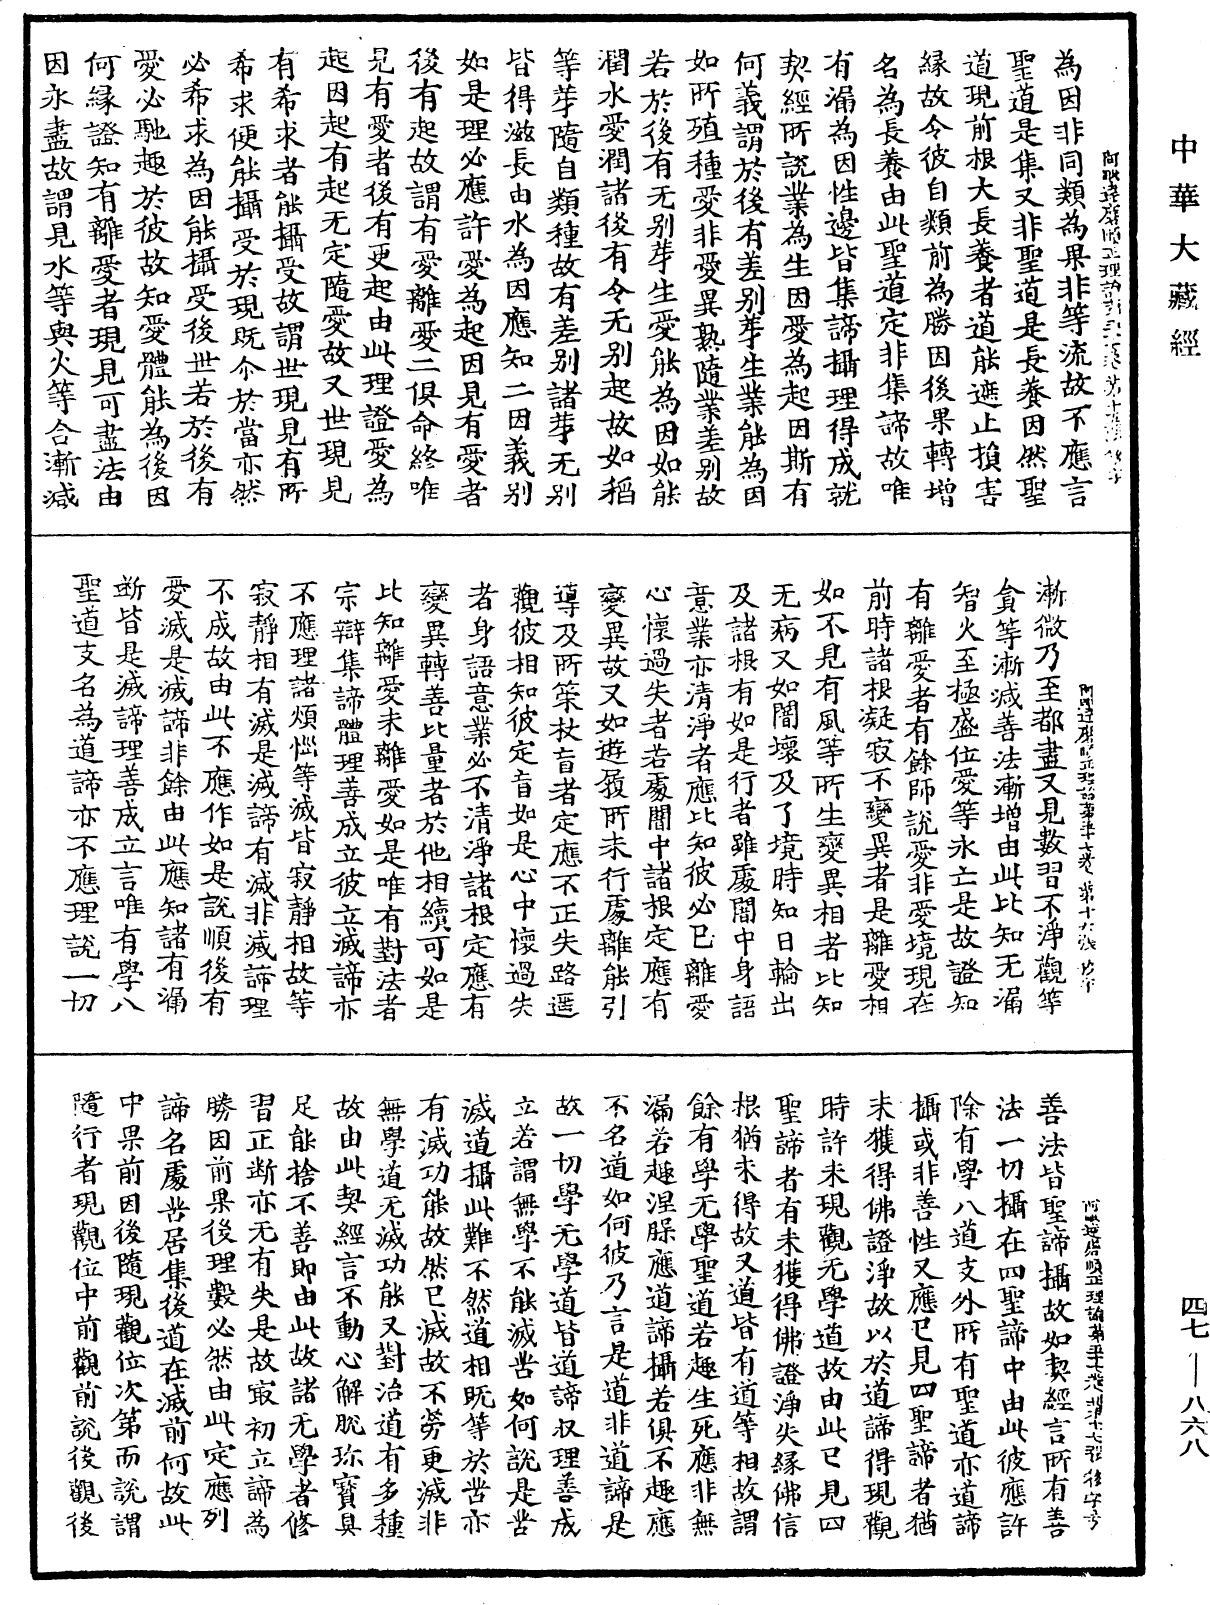 中華大藏經
為因非同類為果非等流故不應言
聖道是集又非聖道是長養因然聖
道現前根大長養者道能遮止損害
緣故令彼自類前為勝因後果轉增
名為長養由此聖道定非集諦故唯
有漏為因性邊皆集諦攝理得成就
契經所說業為生因愛為起因斯有
何義謂於後有差別芽生業能為因
如所殖種愛非愛異熟隨業差別故
若於後有无別芽生愛能為因如能
潤水愛潤諸後有令无別起故如稻
等芽隨自類種故有差別諸芽无別
皆得滋長由水為因應知二因義別
如是理必應許愛為起因見有愛者
後有起故謂有愛離愛二俱命終唯
見有愛者後有更起由此理證愛為
起因起有起无定隨愛故又世現見
有希求者能攝受故謂世現見有所
希求便能攝受於現既尒於當亦然
必希求為因能攝受後世若於後有
愛必馳趣於彼故知愛體能為後因
何緣證知有離愛者現見可盡法由
因永盡故謂見水等與火等合漸減
漸微乃至都盡又見數習不淨觀等
貪等漸減善法漸增由此比知无漏
智火至極盛位愛等永亡是故證知
有離愛者有餘師說愛非愛境現在
前時諸根凝寂不變異者是離愛相
如不見有風等所生變異相者比知
无病又如闇壞及了境時知日輪出
及諸根有如是行者雖處闇中身語
意業亦清淨者應比知彼必已離愛
心懷過失者若處闇中諸根定應有
變異故又如遊履所未行處離能引
導及所策杖盲者定應不正失路遝
觀彼相知彼定盲如是心中懷過失
者身語意業必不清淨諸根定應有
變異轉善比量者於他相續可如是
比知離愛未離愛如是唯有對法者
宗辯集諦體理善成立彼立滅諦亦
不應理諸煩惱等滅皆寂靜相故等
寂靜相有滅是滅諦有滅非滅諦理
不成故由此不應作如是說順後有
愛滅是滅諦非餘由此應知諸有漏
斷皆是滅諦理善成立言唯有學八
聖道支名為道諦亦不應理說一切
善法皆聖諦攝故如契經言所有善
法一切攝在四聖諦中由此彼應許
除有學八道支外所有聖道亦道諦
攝或非善性又應已見四聖諦者猶
未獲得佛證淨故以於道諦得現觀
時許未現觀无學道故由此已見四
聖諦者有未獲得佛證淨失緣佛信
根猶未得故又道皆有道等相故謂
餘有學无學聖道若趣生死應非無
漏若趣涅槃應道諦攝若俱不趣應
不名道如何彼乃言是道非道諦是
故一切學无學道皆道諦収理善成
立若謂無學不能滅苦如何說是苦
滅道攝此難不然道相既等於苦亦
有滅功能故然已滅故不勞更滅非
無學道无滅功能又對治道有多種
故由此契經言不動心解脫珎寶具
足能捨不善即由此故諸无學者修
習正斷亦无有失是故寂初立諦為
勝因前果後理數必然由此定應列
諦名處苦居集後道在滅前何故此
中果前因後隨現觀位次第而說謂
隨行者現觀位中前觀前說後觀後
四七—八六八